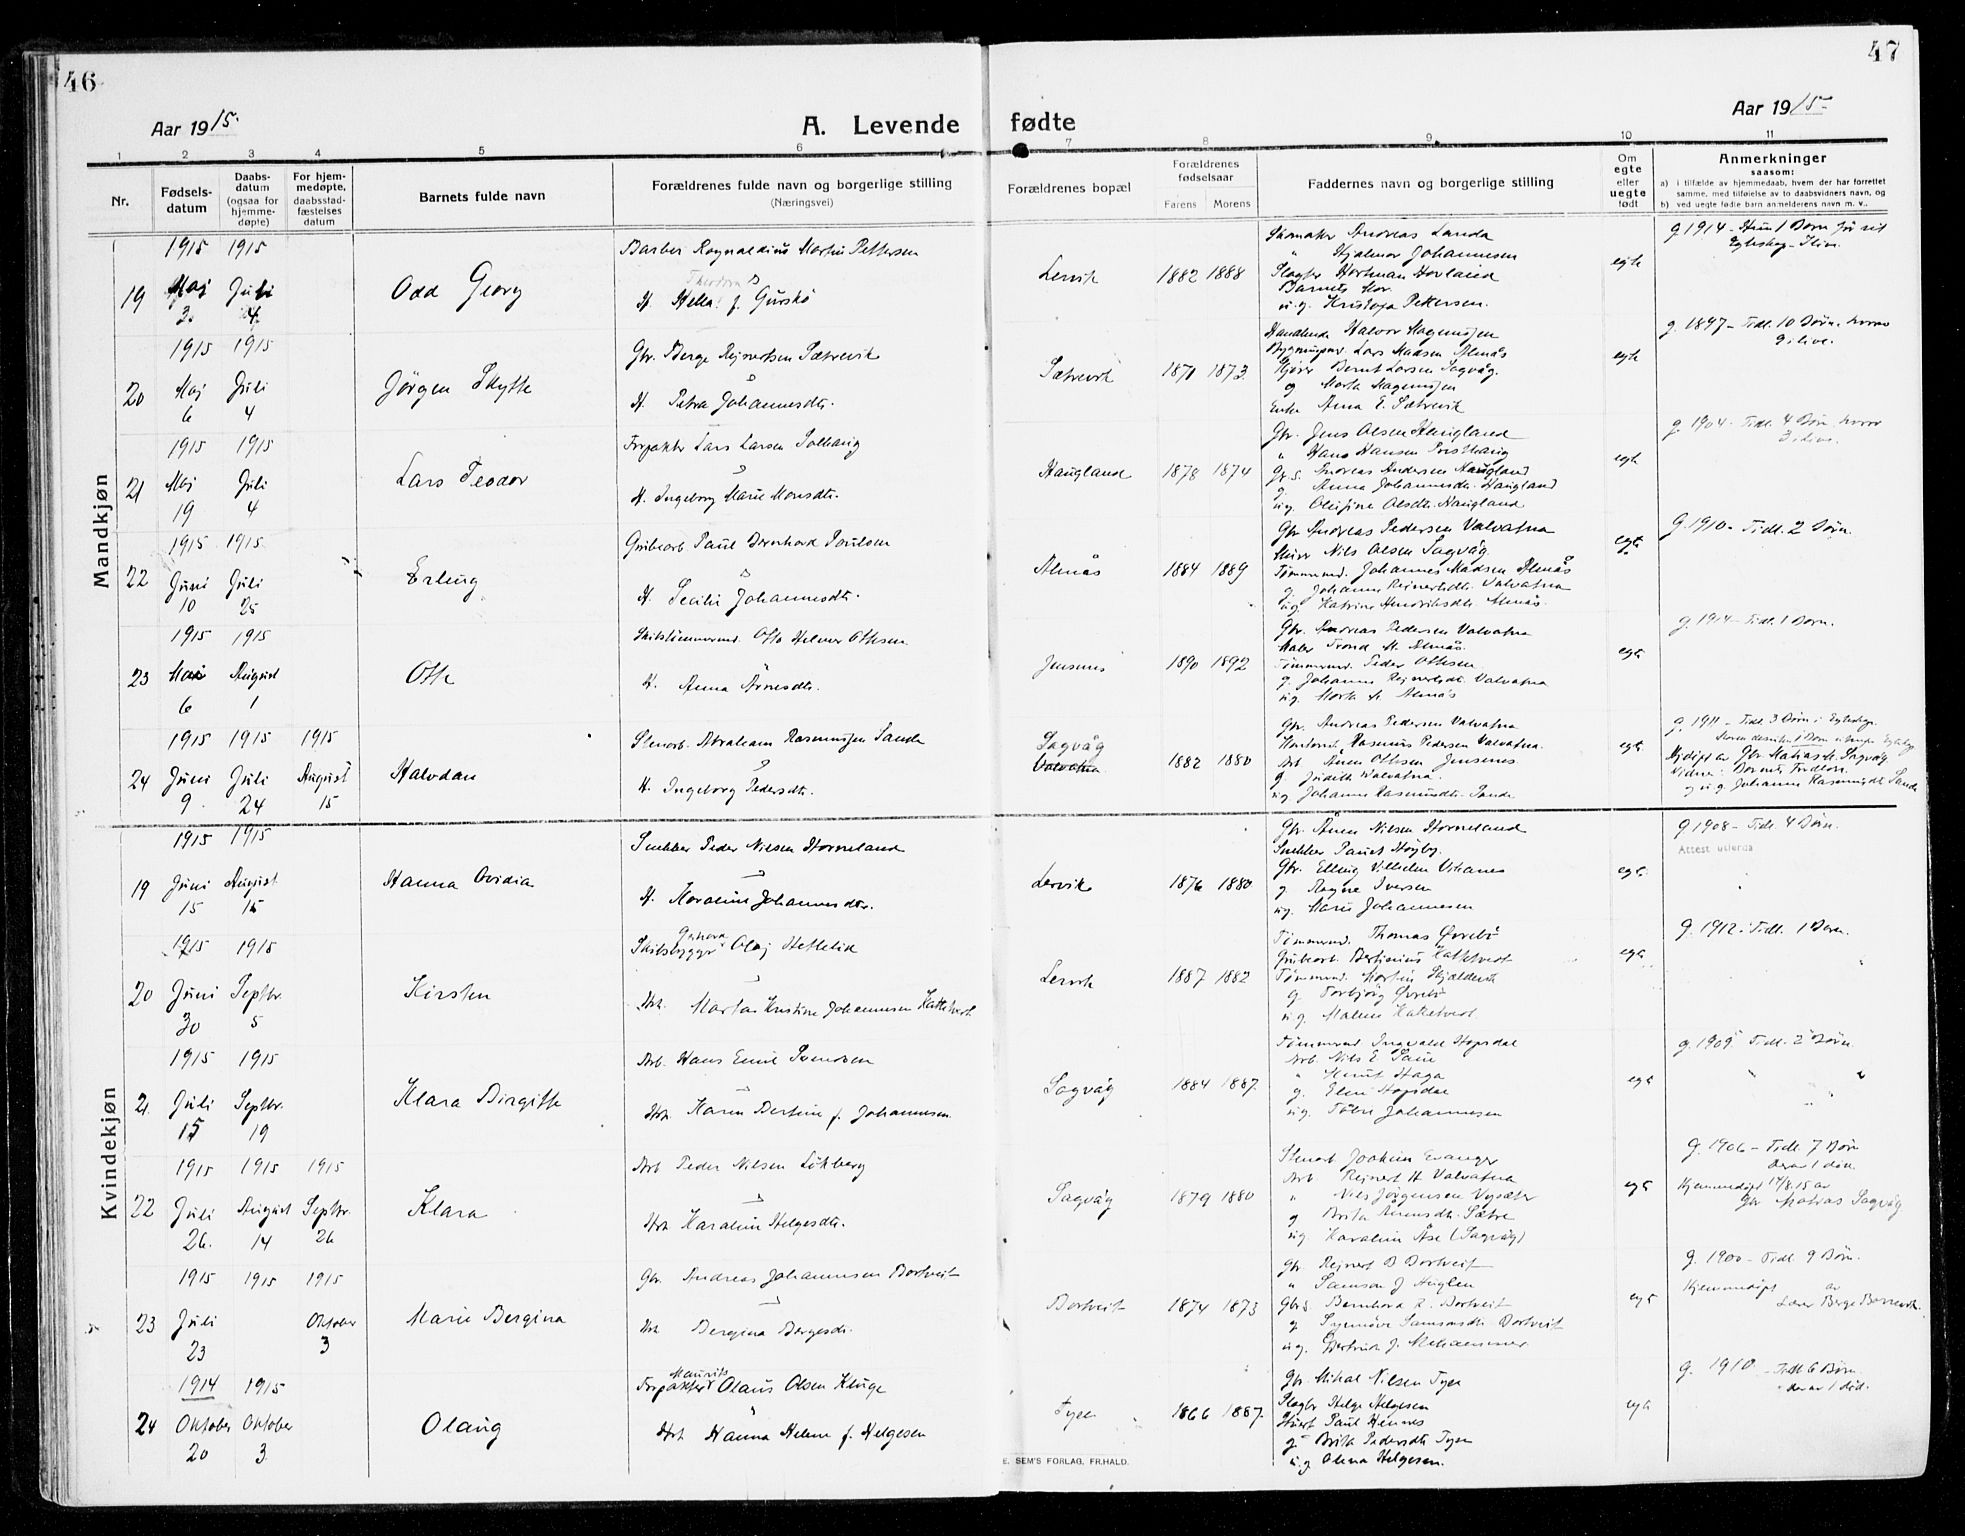 46
47
Aar 1915.
A. Levende fødte
Aar 1915
1 2 3 4 5 6 7 8 9 10 11
Nr.
Fødsels-
datum
Daabs-
datum
(ogsaa for
hjemme-
døpte)
For hjem-
medøpte,
daabsstad-
fæstelses
datum
Barnets fulde navn
Forældrenes fulde navn og borgerlige stilling
(Næringsvei)
Forældrenes bopæl
Forældrenes
fødselsaar
Farens Morens
Faddernes navn og borgerlige stilling
Om
egte
eller
uegte
født
Anmerkninger
saasom:
a) i tilfælde av hjemmedaab, hvem der har forrettet
samme, med tilføielse av to daabsvidners navn, og
b) ved uegte fødte barn anmelderens navn m. v..
Mandkjøn
19
1915 Maj 2.
1915 Juli 4.
Odd Georg
Barber Rognaldius Martin Pettersen
H. f. Gurskö
Lervik
1882 1888
Skomaker Andreas Landa
" Hjalmar Johannesen
Slagter Hartman Hovland
Barnets Mor.
u.g. Kristofa Pettersen.
egte
g 1914 -
20
1915 Maj 6
1915 Juli 4
Jörgen Skytte
Gbr. Berge Rejnertsen Sætrevik
H. Petra Johannesdtr.
Sætrevik
1871 1873.
Halvor Magnussen
Lars Madsen Almås
Bernt Larsen Sagvåg.
g Marta Magnussen
Enke Anna E. Sætrevik
egte
g. 1897 - Tidl. 10 Börn, hvorav
9 i live.
21
1915 Maj 19
1915 Juli 4
Lars Teodor
Forpakter Lars Larsen Solhaug
H. Ingeborg Marie Monsdtr.
Haugland
1878 1874
Gbr. Jens Olsen Haugland
" Hans Hansen
Gbr. s. Andreas Andersen Haugland
g. Anna Johannesdtr. Haugland
ug. Olufine Olsdtr. Haugland
egte
g 1904 - Tidl. 4 Börn, hvorav
3 i live.
22
1915 Juni 10
1915 Juli 25
Erling
Grubearb. Paul Bernhard Paulsen
H. Secilie Johannesdtr.
Almås
1884 1889
Gbr Andreas Pedersen Valvatna
Nils Olsen Sagvåg.
Tømmermd. Johannes Madsen Almås
g. Johanne Rejnertsdtr. Valvatna
ug. Katrine Hendriksdtr. Almås.
egte
G. 1910 - Tidl. 2 Börn.
23
1915 Mai 6
1915 August 1
Otto
Skibstømmermd. Otto Helmer Ottesen
H. Anna Arnesdtr.
Jensenes
1890 1892
Gbr. Andreas Pedersen Valvatna
Maler Trond M. Almås.
Tømmermd. Peder Ottesen
g. Johanne Rejnertsdtr. Valvatna
ug. Marta M. Almås
egte
g. 1914 - Tidl. 1 Barn.
24
1915 Juni 9.
1915 Juli 24
1915 August 15
Halvdan
Stenarb. Abraham Rasmussen Sande
H. Ingeborg Pedersdtr.
Sagvåg
Valvatna
1882 1880
Gbr. Andreas Pedersen Valvatna
Rasmus Pedersen Valvatna.
Arb. Ottesen Jensenes
g. Judith Valvatna.
ug. Johanne Rasmusdtr. Sande
egte
g. 1911 - Tidl. 3 Börn i Egteskap.
Hjdöpt av Gbr. Matias M. Sagvåg
Vidner: Barnets Foreldre
og u.g. Johanne Rasmusdtr. Sande
Kvindekjøn
19
1915 Juni 15
1915 August 15
Hanna Ovidia
Snekker Peder Nilsen Horneland
H. Karoline Johannesdtr.
Lervik
1876 1880
Gbr. Nilsen Horneland
Snekker Paul Höyby.
Gbr. Elling Vilhelm Vikanes
g. Ragna Iversen
ug. Marie Johannesen
egte
g 1908 - Tidl. 4 Börn.
Attest utferda
20
1915 Juni 30
1915 Septbr. 5
Kirsten
Skibsbygger Gerhard Olaj Hettelid
Hst. Marta Kristine Johannesen Kattetveit
Lervik
1887 1882
Tømmermd. Thomas Øvrebö
Grubearb. Bertinius Kattetveit
Tømmermd. Martin Skjeldervik
g. Torbjörg Øvrebö
u.g. Malene Kattetveit
egte
g. 1912 - Tidl. 1 Barn.
21
1915 Juli 15
1915 Septbr. 19
Klara Birgitte
Arb. Hans Emil Svendsen
Hst. Karen Bertine f. Johannesen.
Sagvåg
1884 1887.
Tømmermd Ingvald Hopsdal
Arb. Nils E.
" Knut Haga
g. Eline Hopsdal
ug. Johannesen
egte
g. 1909. Tidl. 2 Börn.
22
1915 Juli 26.
1915 August 14
1915 Septbr. 26
Klara
Arb Peder Nilsen Lökberg
Hst Karoline Helgesdtr.
Sagvåg
1879 1880
Stenarb Joakim Evanger
Arb. Rejnert H Valvatna
" Nils Jörgensen Vysæter
g Brita Sætre
ug. Karoline Åse (Sagvåg)
egte
g. 1906 - Tidl. 7 Börn
derav 1 död.
Hjemmedöpt 14/8.15 av
Gbr Matias Sagvåg
23
1915 Juli 23
1915
1915 Oktober 3
Marie Bergina
Gbr. Andreas Johannesen Bortveit
Hst Bergina Bergesdtr.
Bortveit
1874 1873
Gbr. Rejnert B Bortveit
" Samson J Huglen
Gbr. s. Bernhard R. Bortveit
g Synnöve Samsonsdtr. Bortveit
ug. Gertrude J. Mehammer
egte
g. 1900 - Tidl. 9 Börn.
Hjemmedöpt av
Lærer Berge
24
1914 Oktober 20
1915 Oktober 3.
Olaug
Forpakter Maurits Olaus Olsen Kluge
Hst Hanna Helene f. Helgesen
Tyse
1866 1887.
Gbr. Mikal Nilsen Tyse
Slagter Helge Helgesen
Paul Hennes
g. Brita Pedersdtr Tyse
u.g Olena Helgesen.
egte
g. 1910 - Tidl 6 Börn.
derav 1 död.
E. SEM'S FORLAG, FR.HALD.